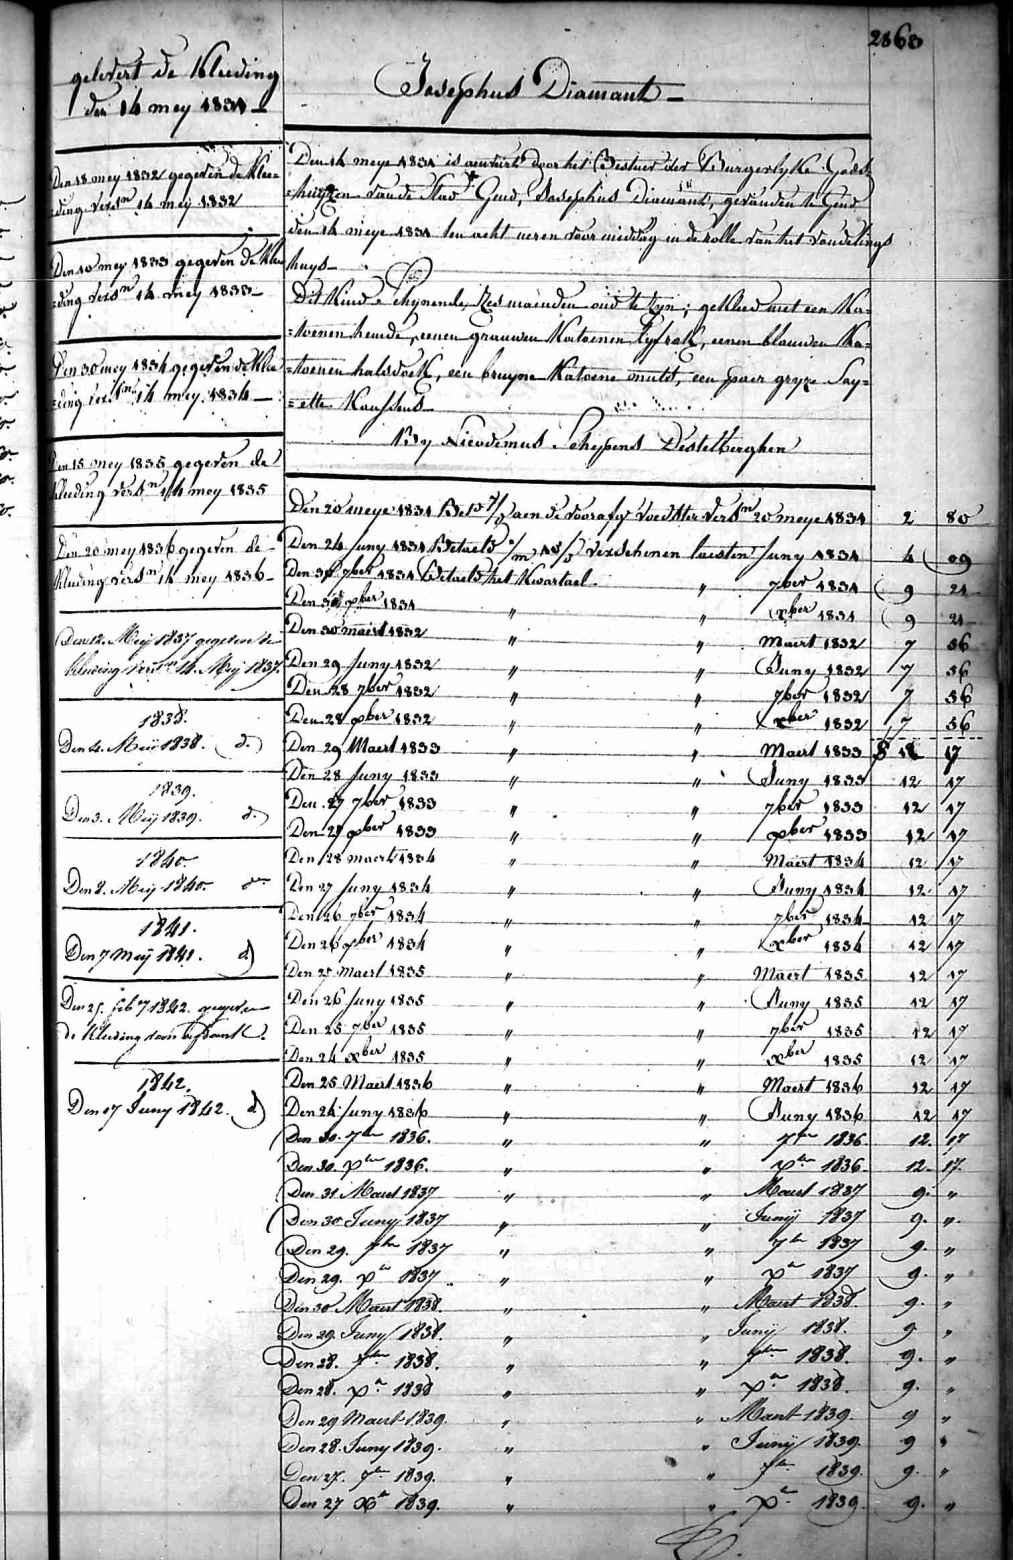 2863
gelevert de Kleeding
den 14 mey 1831
Den 18 mey 1832 gegeven de Klee=
=ding vers.n 14 mey 1832
Den 10 mey 1833 gegeven de Klee
=ding vers.n 14 mey 1833
Den 30 mey 1834 gegeven de Klee
=ding vers.n 14 mey 1834
Den 15 mey 1835 gegeven de
Kleeding vers.n 14 mey 1835
Den 20 mey 1836 gegeven de
Kleeding vers.n 14 mey 1836
Den 12. Meij 1837 gegeven de
kleeding vers.n 14. Meij 1837.
1838.
Den 4. Meij 1838. d.)
1839.
Den 3. Meij 1839. d.)
1840.
Den 8. Meij 1840.
1841.
Den 7 Meij 1841. d)
Den 25. feb 1842. gegeven
de Kleeding
1842.
Den 17 Juny 1842. d)
Josephus Diamant
Den 14 meye 1831 is door het Bestuer der Burgerlyke Gods=
=huyzen van de Stad Gend, Josephus Diamant, gevonden te Gend
den 14 meye 1831 ten acht ueren voor middag in de rolle van het vondelings
huys
Dit Kind Schynende, zes maenden oud te zyn; gekleed met een Ka=
=toenen hemde, eenen grauwen Katoenen lyfrok, eenen blauwen Ka=
=toenen halsdoek, een bruyne Katoene muts, een paer gryze Say=
=ette Kaussens
By Nicodemus Schepens Destelberghen
Den 20 meye 1831 aen de voorz voedster vers.n 20 meye 1831 2 80
Den 24 Juny 1831 Betaeld verschenen laesten Juny 1831 4 09
Den 30 7ber 1831 Betaeld het Kwartael " 7ber 1831 9 21
Den 30 xber 1831 " " xber 1831 9 21
Den 30 maert 1832 " " Maert 1832 7 56
Den 29 Juny 1832 " " Juny 1832 7 56
Den 28 7ber 1832 " " 7ber 1832 7 56
Den 28 xber 1832 " " xber 1832 7 56
Den 29 Maert 1833 " " Maert 1833 12 17
Den 28 Juny 1833 " " Juny 1833 12 17
Den 27 7ber 1833 " " 7ber 1833 12 17
Den 27 xber 1833 " " xber 1833 12 17
Den 28 maert 1834 " " Maert 1834 12 17
Den 27 Juny 1834 " " Juny 1834 12 17
Den 26 7ber 1834 " " 7ber 1834 12 17
Den 26 xber 1834 " " xber 1834 12 17
Den 27 Maert 1835 " " Maert 1835 12 17
Den 26 Juny 1835 " " Juny 1835 12 17
Den 25 7ber 1835 " " 7ber 1835 12 17
Den 24 xber 1835 " " xber 1835 12 17
Den 25 Maert 1836 " " Maert 1836 12 17
Den 24 Juny 1836 " " Juny 1836 12 17
Den 30. 7ber 1836. " " 7ber 1836. 12. 17
Den 30. xber 1836. " " xber 1836. 12. 17.
Den 31 Maert 1837 " " Maert 1837 9. "
Den 30 Juny 1837 " " Junij 1837 9. "
Den 29. 7ber 1837 " " 7br 1837 9. "
Den 29. xr 1837 " " xr 1837 9. "
Den 30 Maert 1838. " " Maert 1838. 9. "
Den 29. Juny 1838. " " Junij 1838. 9 "
Den 28. 7ber 1838. " " 7ber 1838. 9. "
Den 28. xr 1838 " " xr 1838. 9. "
Den 29 Maert 1839. " " Maert 1839. 9 "
Den 28. Juny 1839. " " Junij 1839. 9 "
Den 27. 7br 1839. " " 7br 1839. 9. "
Den 27 xr 1839. " " xr 1839. 9. "